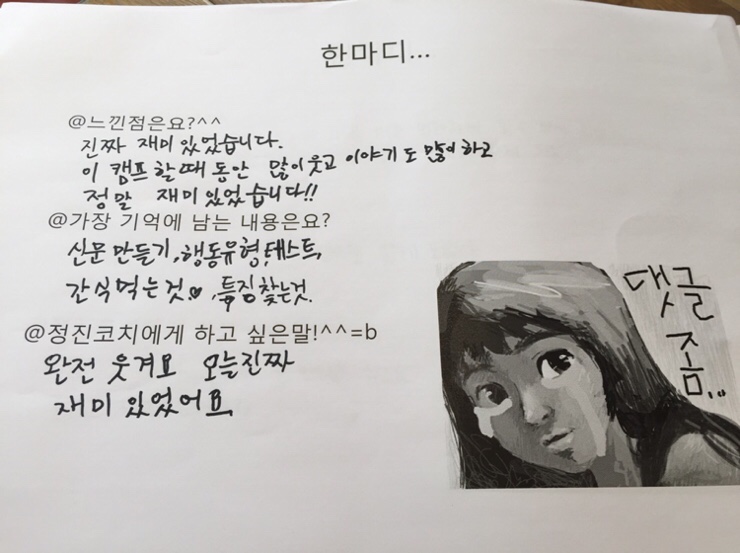 한마디...
@느낀점은요?^^
진짜 재미있었습니다.
이 캠프할때 동안 많이웃고 이야기도 많이하고
정말 재미있었습니다!!
@가장 기억에 남는 내용은요?
신문만들기, 행동유형테스트,
간식먹는것♥, 특징찾는것.
@정진코치에게 하고 싶은말!^^=b
완전 웃겨요 오늘진짜
재미있었어요
댓글
좀...